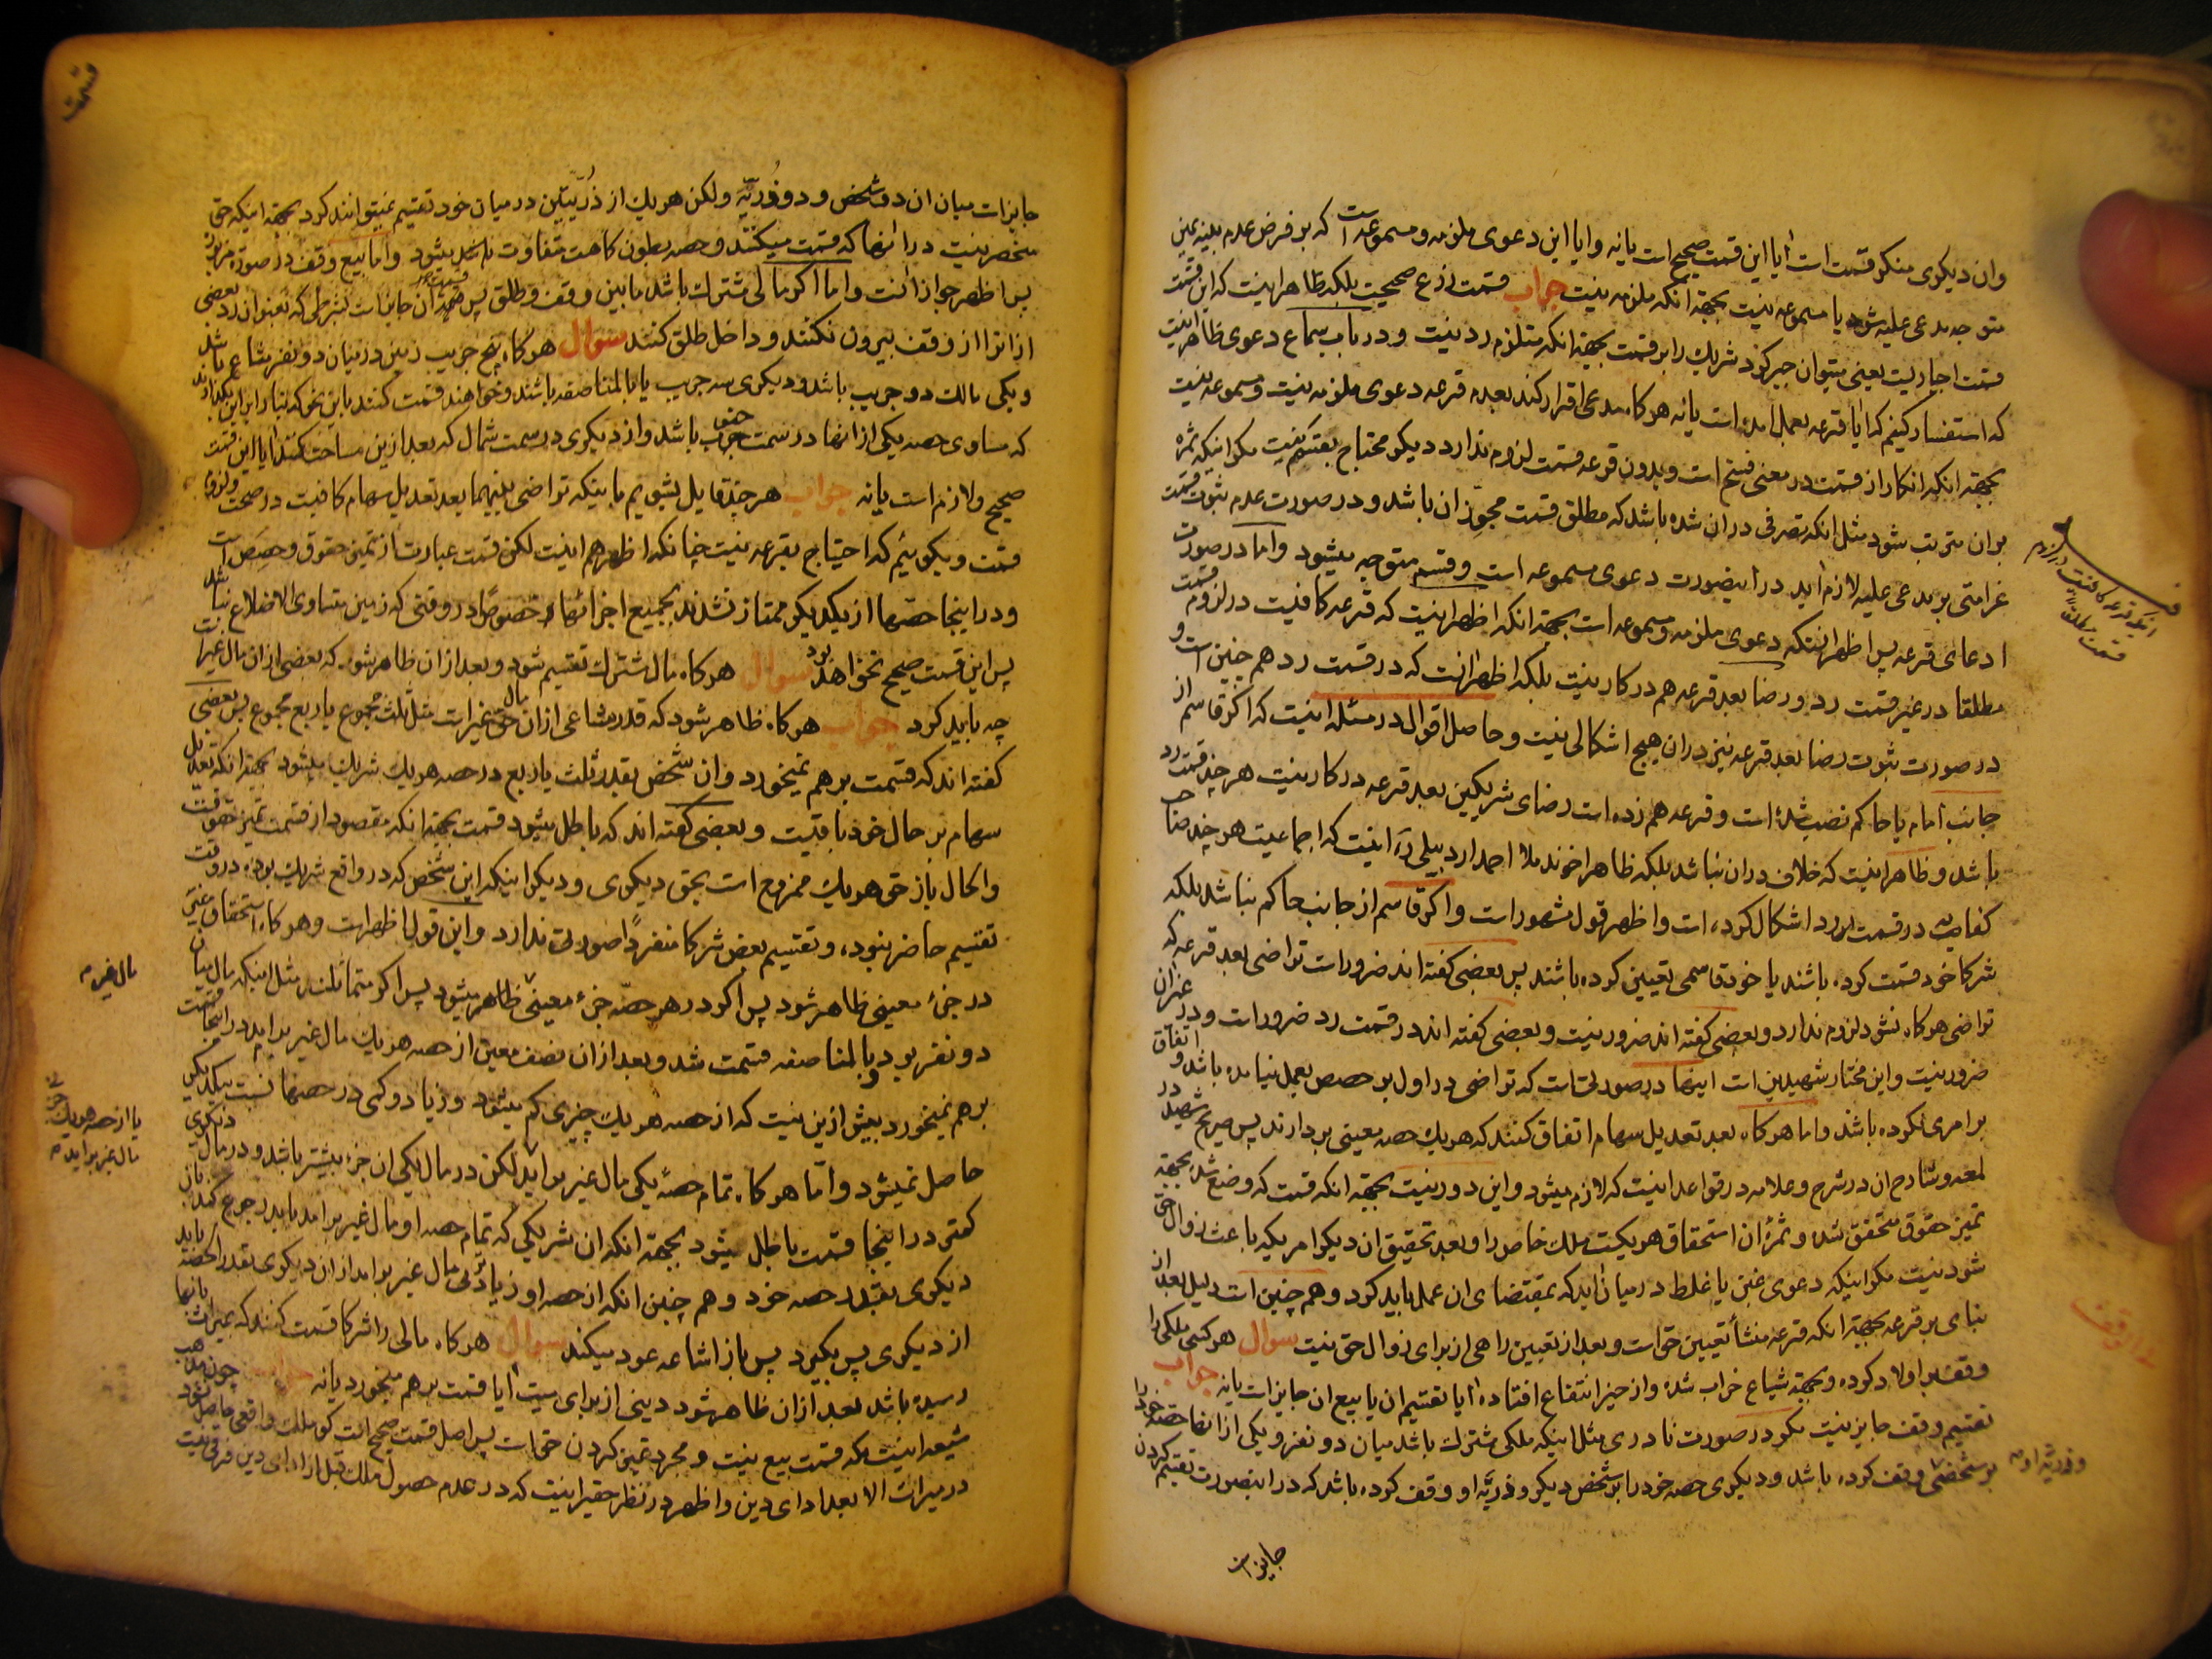 وان دیکری منکر قسمت است ایا این قسمت صحیح است یانه وایا این دعوی ملزمه ومسموعه است که بر فرض عدم بینه یمین
متوجه مدعی علیه شود یا مسموعه نیست بجهة انکه ملزمه نیست جواب قسمت زرع صحیحست بلکه ظاهر اینست که این قسمت
قسمت اجباریست یعنی میتوان جبر کرد شریك را بر قسمت بجهة انکه متلزم رد نیست ودر باب سماع دعوی ظاهر اینست
که استفسار کنیم که ایا قرعه بعمل امده است یانه هرکاه مدعی اقرار کند بعدم قرعه دعوی ملزمه نیست ومسموعه نیست
بجهة انکه انکار از قسمت در معنی فسخ است وبدون قرعه قسمت لزوم ندارد دیکر محتاج بقسم نیست مکر اینکه ثمره
بران مترتب شود مثل انکه تصرفی دران شده باشد که مطلق قسمت مجوز ان باشد ودر صورت عدم ثبوت قسمت
غرامتی بر مدعی علیه لازم اید در اینصورت دعوی مسموعه است وقسم متوجه میشود واما در صورت
ادعای قرعه پس اظهر انستکه دعوی ملزمه ومسموعه است بجهة انکه اظهر اینست که قرعه کافیست در لزوم قسمت
مطلقا در غیر قسمت رد ورضا بعد قرعه هم در کار نیست بلکه اظهر انست که در قسمت رد هم چنین است و
در صورت ثبوت رضا بعد قرعه نیز دران هیچ اشکالی نیست وحاصل اقوال در مسئله اینست که اکر قاسم از
جانب امام یا حاکم نصب شده است وقرعه هم زده است رضای شریکین بعد قرعه در کار نیست هر چند قسمت رد
باشد وظاهر اینست که خلاف دران نباشد بلکه ظاهر اخوند ملا احمد اردبیلی ره اینست که اجماعیست هر چند صاحب
کفایه در قسمت رد اشکال کرده است واظهر قول مشهور است واکر قاسم از جانب حاکم نباشد بلکه
شرکا خود قسمت کرده باشند یا خود قاسمی تعیین کرده باشند پس بعضی کفته اند ضرور است تراضی بعد قرعه که
تراضی هرکاه نشود لزوم ندارد وبعضی کفته اند ضرور نیست وبعضی کفته اند در قسمت رد ضرور است ودر غیر ان
ضرور نیست واین مختار شهیدین است اینها در صورتیست که تراضی در اول بر حصص بعمل نیامده باشد واتفاق
بر امری نکرده باشند واما هرکاه بعد تعدیل سهام اتفاق کنند که هریك حصه معینی بردارند پس صریح شهید در
لمعه وشارح ان در شرح وعلامه در قواعد اینست که لازم میشود واین دور نیست بجهة انکه قسمت که وضع شده بجهة
تمیز حقوق متحقق شده وثمره ان استحقاق هریکیست ملك خاص را وبعد تحقیق ان دیکر امریکه باعث زوال حق
شود نیست مکر اینکه دعوی غبن یا غلط در میان اید که بمقتضای ان عمل باید کرد وهم چنین است دلیل بعد از
بنای بر قرعه بجهة انکه قرعه منشأ تعیین حق است وبعد از تعیین راهی از برای زوال حق نیست سوال هر کسی ملکی را
وقف بر اولاد کرده وبجهة شیاع خراب شده واز حیز انتفاع افتاده ایا تقسیم ان یا بیع ان جایز است یانه جواب
تقسیم وقف جایز نیست مکر در صورت نادری مثل اینکه ملکی مشترك باشد میان دو نفر ویکی از انها حصه خود را
بر شخصی وقف کرده باشد ودیکری حصه خود را بر شخص دیکر وذریه او وقف کرده باشد که در اینصورت تقسیم کردن
وذریه او
جایز است
قسمت
جایز است میان ان دو شخص ودو ذریه ولکن هریك از ذریتین در میان خود تقسیم نمیتوانند کرد بجهة اینکه حق
منحصر نیست در انها که قسمت میکنند وحصه بطون کاهست متفاوت باشد میشود واما بیع وقف در صورة مزبور
پس اظهر جواز انست واما اکر مالی مشترك باشد مابین وقف وطلق پس قسمت ان جایز است بشرطی که بعنوان رد بعضی
از انرا از وقف بیرون نکنند وداخل طلق کنند سوال هرکاه پنج جریب زمین در میان دو نفر مشاع باشد
ویکی مالك دو جریب باشد ودیکری سه جریب یا بالمناصفه باشند وخواهند قسمت کنند باین نحو که بنا را براین بکذارند
که مساوی حصه یکی از انها در سمت جنوب باشد واز دیکری در سمت شمال که بعد ازین مساحت کنند ایا این قسمت
صحیح ولازم است یانه جواب هر چند قایل بشویم باینکه تراضی بینهما بعد تعدیل سهام کافیست در صحت ولزوم
قسمت وبکوئیم که احتیاج بقرعه نیست چنانکه اظهر هم اینست لکن قسمت عبارت از تمیز حقوق وحصص است
ودر اینجا حصها از یکدیکر ممتاز نشدند بجمیع اجزائها خصوصا در وقتی که زمین متساوی الاضلاع نباشد
پس این قسمت صحیح نخواهد بود سوال هرکاه مال مشترك تقسیم شود وبعد ازان ظاهر شود که بعضی ازان مال غیر است
چه باید کرد جواب هرکاه ظاهر شود که قدر مشاعی ازان مال غیر است مثل ثلث مجموع یا ربع مجموع پس بعضی
کفته اند که قسمت بر هم نمیخورد وان شخص بقدر ثلث یا ربع در حصه هریك شریك میشود بجهة انکه تعدیل
سهام بر حال خود باقیست وبعضی کفته اند که باطل میشود قسمت بجهة انکه مقصود از قسمت تمیز حقوقست
والحال باز حق هریك ممزوج است بحق دیکری ودیکر اینکه این شخص که در واقع شریك بوده در وقت
تقسیم حاضر نبوده وتقسیم بعض شرکا منفردا صورت ندارد واین قول اظهر است وهرکاه استحقاق غیری
در جزء معینی ظاهر شود پس اکر در هر حصه جزء معینی ظاهر میشود پس اکر متماثلند مثل اینکه مال میان
مال غیر
دو نفر بود وبالمناصفه قسمت شد وبعد ازان نصف معین از حصه هریك مال غیر براید در اینجا قسمت
بر هم نمیخورد بیش ازین نیست که از حصه هریك چیزی کم میشود وزیاد وکمی در حصها نسبت بیکدیکر
حاصل نمیشود واما هرکاه تمام حصه یکی مال غیر براید لکن در مال یکی ان جزء بیشتر باشد ودر مال دیکری
یا از حصه هریك
مال غیر براید
کمتر در اینجا قسمت باطل میشود بجهة انکه ان شریکی که تمام حصه او مال غیر برامد باید رجوع کند بان
دیکری بقدر حصه خود وهم چنین انکه از حصه او زیادتی مال غیر برامد از ان دیکری بقدر الحصه باید
از دیکری پس بکیرد پس باز اشاعه عود میکند سوال هرکاه مالی را شرکا قسمت کنند که بمیراث بانها
رسیده باشد بعد ازان ظاهر شود دینی از برای میت ایا قسمت بر هم میخورد یانه جواب چون مذهب
شیعه اینست که قسمت بیع نیست ومجرد تمیز کردن حق است پس اصل قسمت صحیح است کو ملك واقعی حاصل نشود
در میراث الا بعد ادای دین واظهر در نظر حقیر اینست که در عدم حصول ملك قبل از ادای دین فرقی نیست